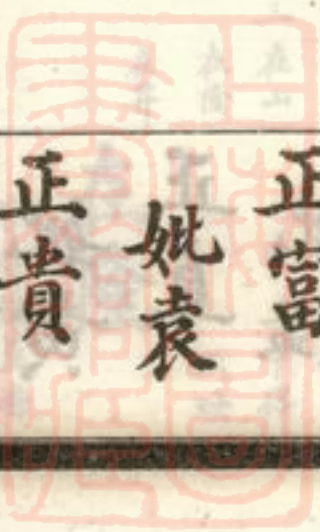 正富
妣袁
正貴